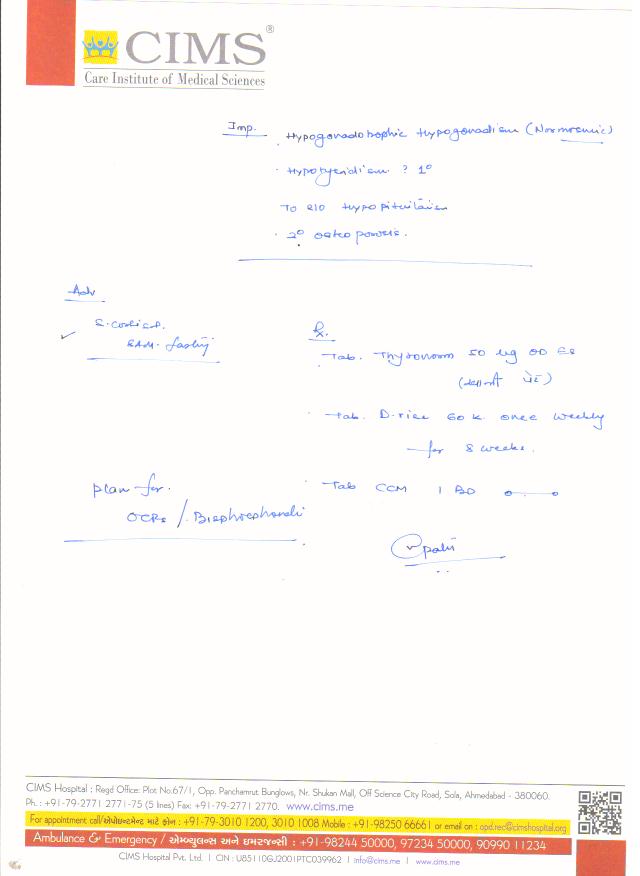 CIMS®
Care Institute of Medical Sciences
Imp.
. Hypogonadotrophic Hypogonadism (Normosmic)
. Hypothyroidism ? 1°
To R/O Hypopituitarism
. 2° osteoporosis.
Adv
S. Cortisol
8AM. fasting
Rx.
. Tab. Thyronorm 50 µg OD ES
. Tab. D-rise 60 K once weekly
for 8 weeks.
. Tab CCM 1 BD
Plan for.
OCPs / Bisphosphonate
CIMS Hospital : Regd Office: Plot No.67/1, Opp. Panchamrut Bunglows, Nr. Shukan Mall, Off Science City Road, Sola, Ahmedabad - 380060.
Ph. : +91-79-2771 2771-75 (5 lines) Fax: +91-79-2771 2770. www.cims.me
For appointment call/એપોઇન્ટમેન્ટ માટે ફોન : +91-79-3010 1200, 3010 1008 Mobile : +91-98250 66661 or email on : opd.rec@cimshospital.org
Ambulance & Emergency / એમ્બ્યુલન્સ અને ઇમરજન્સી : +91-98244 50000, 97234 50000, 90990 11234
CIMS Hospital Pvt. Ltd. | CIN : U85110GJ2001PTC039962 | info@cims.me | www.cims.me